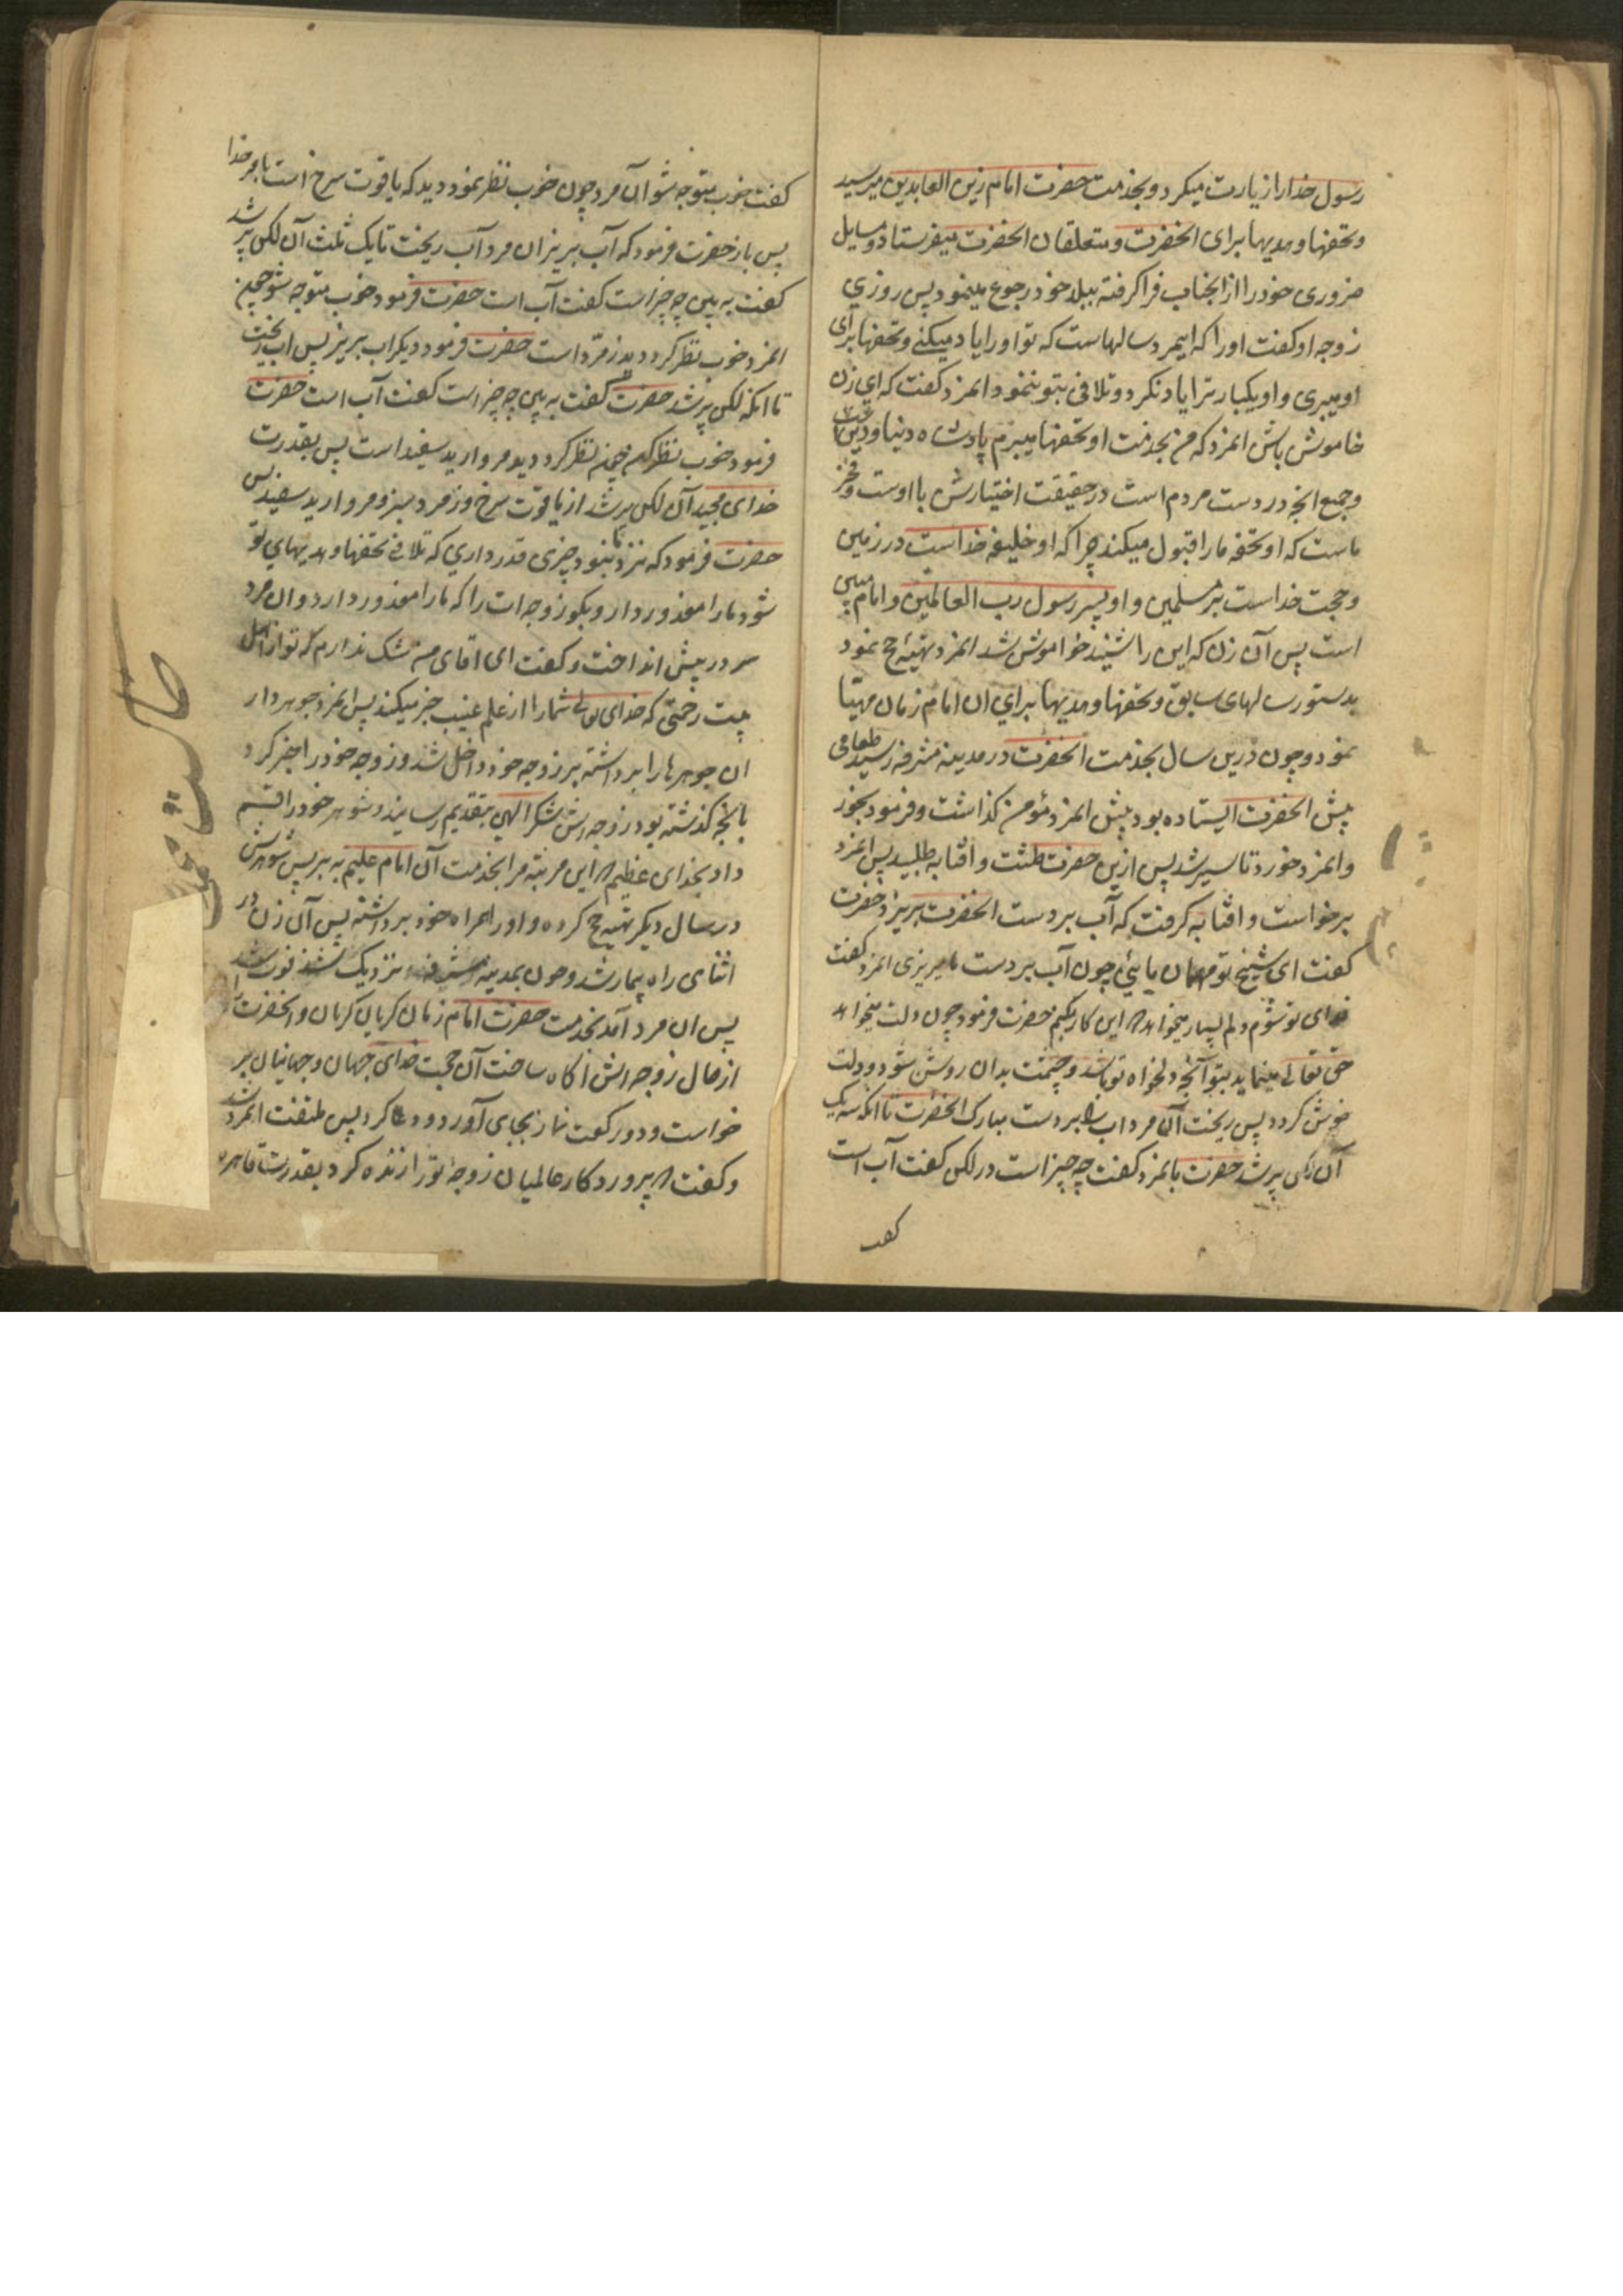 رسول خدا را زیارت میکرد و بخدمت حضرت امام زین العابدین میرسید
و تحفها و هدیها برای انحضرت و متعلقان انحضرت میفرستاد و مسایل
ضروری خود را از انجناب فرا کرفته ببلاد خود رجوع مینمود پس روزی
زوجه او کفت او را که ایمرد سالهاست که تو او را یاد میکنی و تحفها برای
او میبری و او یکبار ترا یاد نکرد و تلافی بتو ننمود انمرد کفت که ای زن
خاموش باش انمرد که من بخدمت او تحفها میبرم پادشاه دنیا و دین
و جمیع انچه در دست مردم است در حقیقت اختیارش با اوست و فخر
ماست که او تحفه ما را قبول میکند چرا که او خلیفه خداست در زمین
و حجت خداست بر مسلمین و او پسر رسول رب العالمین و امام مبین
است پس آن زن که این را شنید خواموش شد انمرد تهیّه حج نمود
بدستور سالهای سابق و تحفها و هدیها برای ان امام زمان مهیّا
نمود و چون درین سال بخدمت انحضرت در مدینه مشرفه رسید طعامی
پیش انحضرت ایستاده بود پیش انمرد مؤمن کذاشت و فرمود بخور
و انمرد خورد تا سیر شد پس ازین حضرت طشت و افتابه طلبید پس انمرد
برخواست و افتابه کرفت که آب بردست انحضرت بریزد حضرت
کفت ای شیخ تو مهمان مایئی چون آب بر دست ما بریزی انمرد کفت
فدای تو شوم دلم بسیار میخواهد که این کار بکنم حضرت فرمود چون دلت میخواهد
حق تعالی مینماید بتو آنچه دلخواه تو باشد و چشمت بدان روشن شود و دلت
خوش کردد پس ریخت آن مرد اب را بر دست مبارک انحضرت تا انکه سه یک
آن لکن پر شد حضرت بانمرد کفت چه چیز است در لکن کفت آب است
کفت
کفت خوب متوجه شو آن مرد چون خوب نظر نمود دید که یاقوت سرخ است بامر خدا
پس باز حضرت فرمود که آب بریز ان مرد آب ریخت تا یک ثلث آن لکن پر شد
کفت به بین چه چیز است کفت آب است حضرت فرمود خوب متوجه شو همچنین
انمرد خوب نظر کرد دید زمرّد است حضرت فرمود دیکر اب بریز پس اب ریخت
تا انکه لکن پر شد حضرت کفت به بین چه چیز است کفت آب است حضرت
فرمود خوب نظر کن چون نظر کرد دید مروارید سفید است پس بقدرت
خدای مجید آن لکن پر شد از یاقوت سرخ و زمرد سبز و مروارید سفید پس
حضرت فرمود که نزد ما نبود چیزی قدر داری که تلافی تحفها و هدیهای تو
شود ما را معذور دار و بکو زوجه ات را که ما را معذور دارد و ان مرد
سر در پیش انداخت و کفت ای اقای من شک ندارم که تو از اهل
بیت رحمتی که خدای تعالی شما را از علم غیب خبر میکند پس انمرد جوهردار
ان جوهرها را برداشته بر زوجه خود داخل شد و زوجه خود را خبر کرد
بانچه کذشته بود زوجه اش شکر الهی بتقدیم رسانید و شوهر خود را قسم
داد بخدای عظیم که این مرتبه مرا بخدمت آن امام علیم به بر پس شوهرش
در سال دیکر تهیه حج کرده و او را همراه خود برداشته پس آن زن در
اثنای راه بیمار شد و چون بمدینه مشرفه نزدیک شدند فوت شد
پس ان مرد آمد بخدمت حضرت امام زمان کریان کریان و انحضرت را
از حال زوجه اش اکاه ساخت آن حجت خدای جهان و جهانیان بر
خواست و دو رکعت نماز بجای آورد و دعا کرد پس ملتفت انمرد شد
و کفت که پروردکار عالمیان زوجه تو را زنده کرد بقدرت قاهره